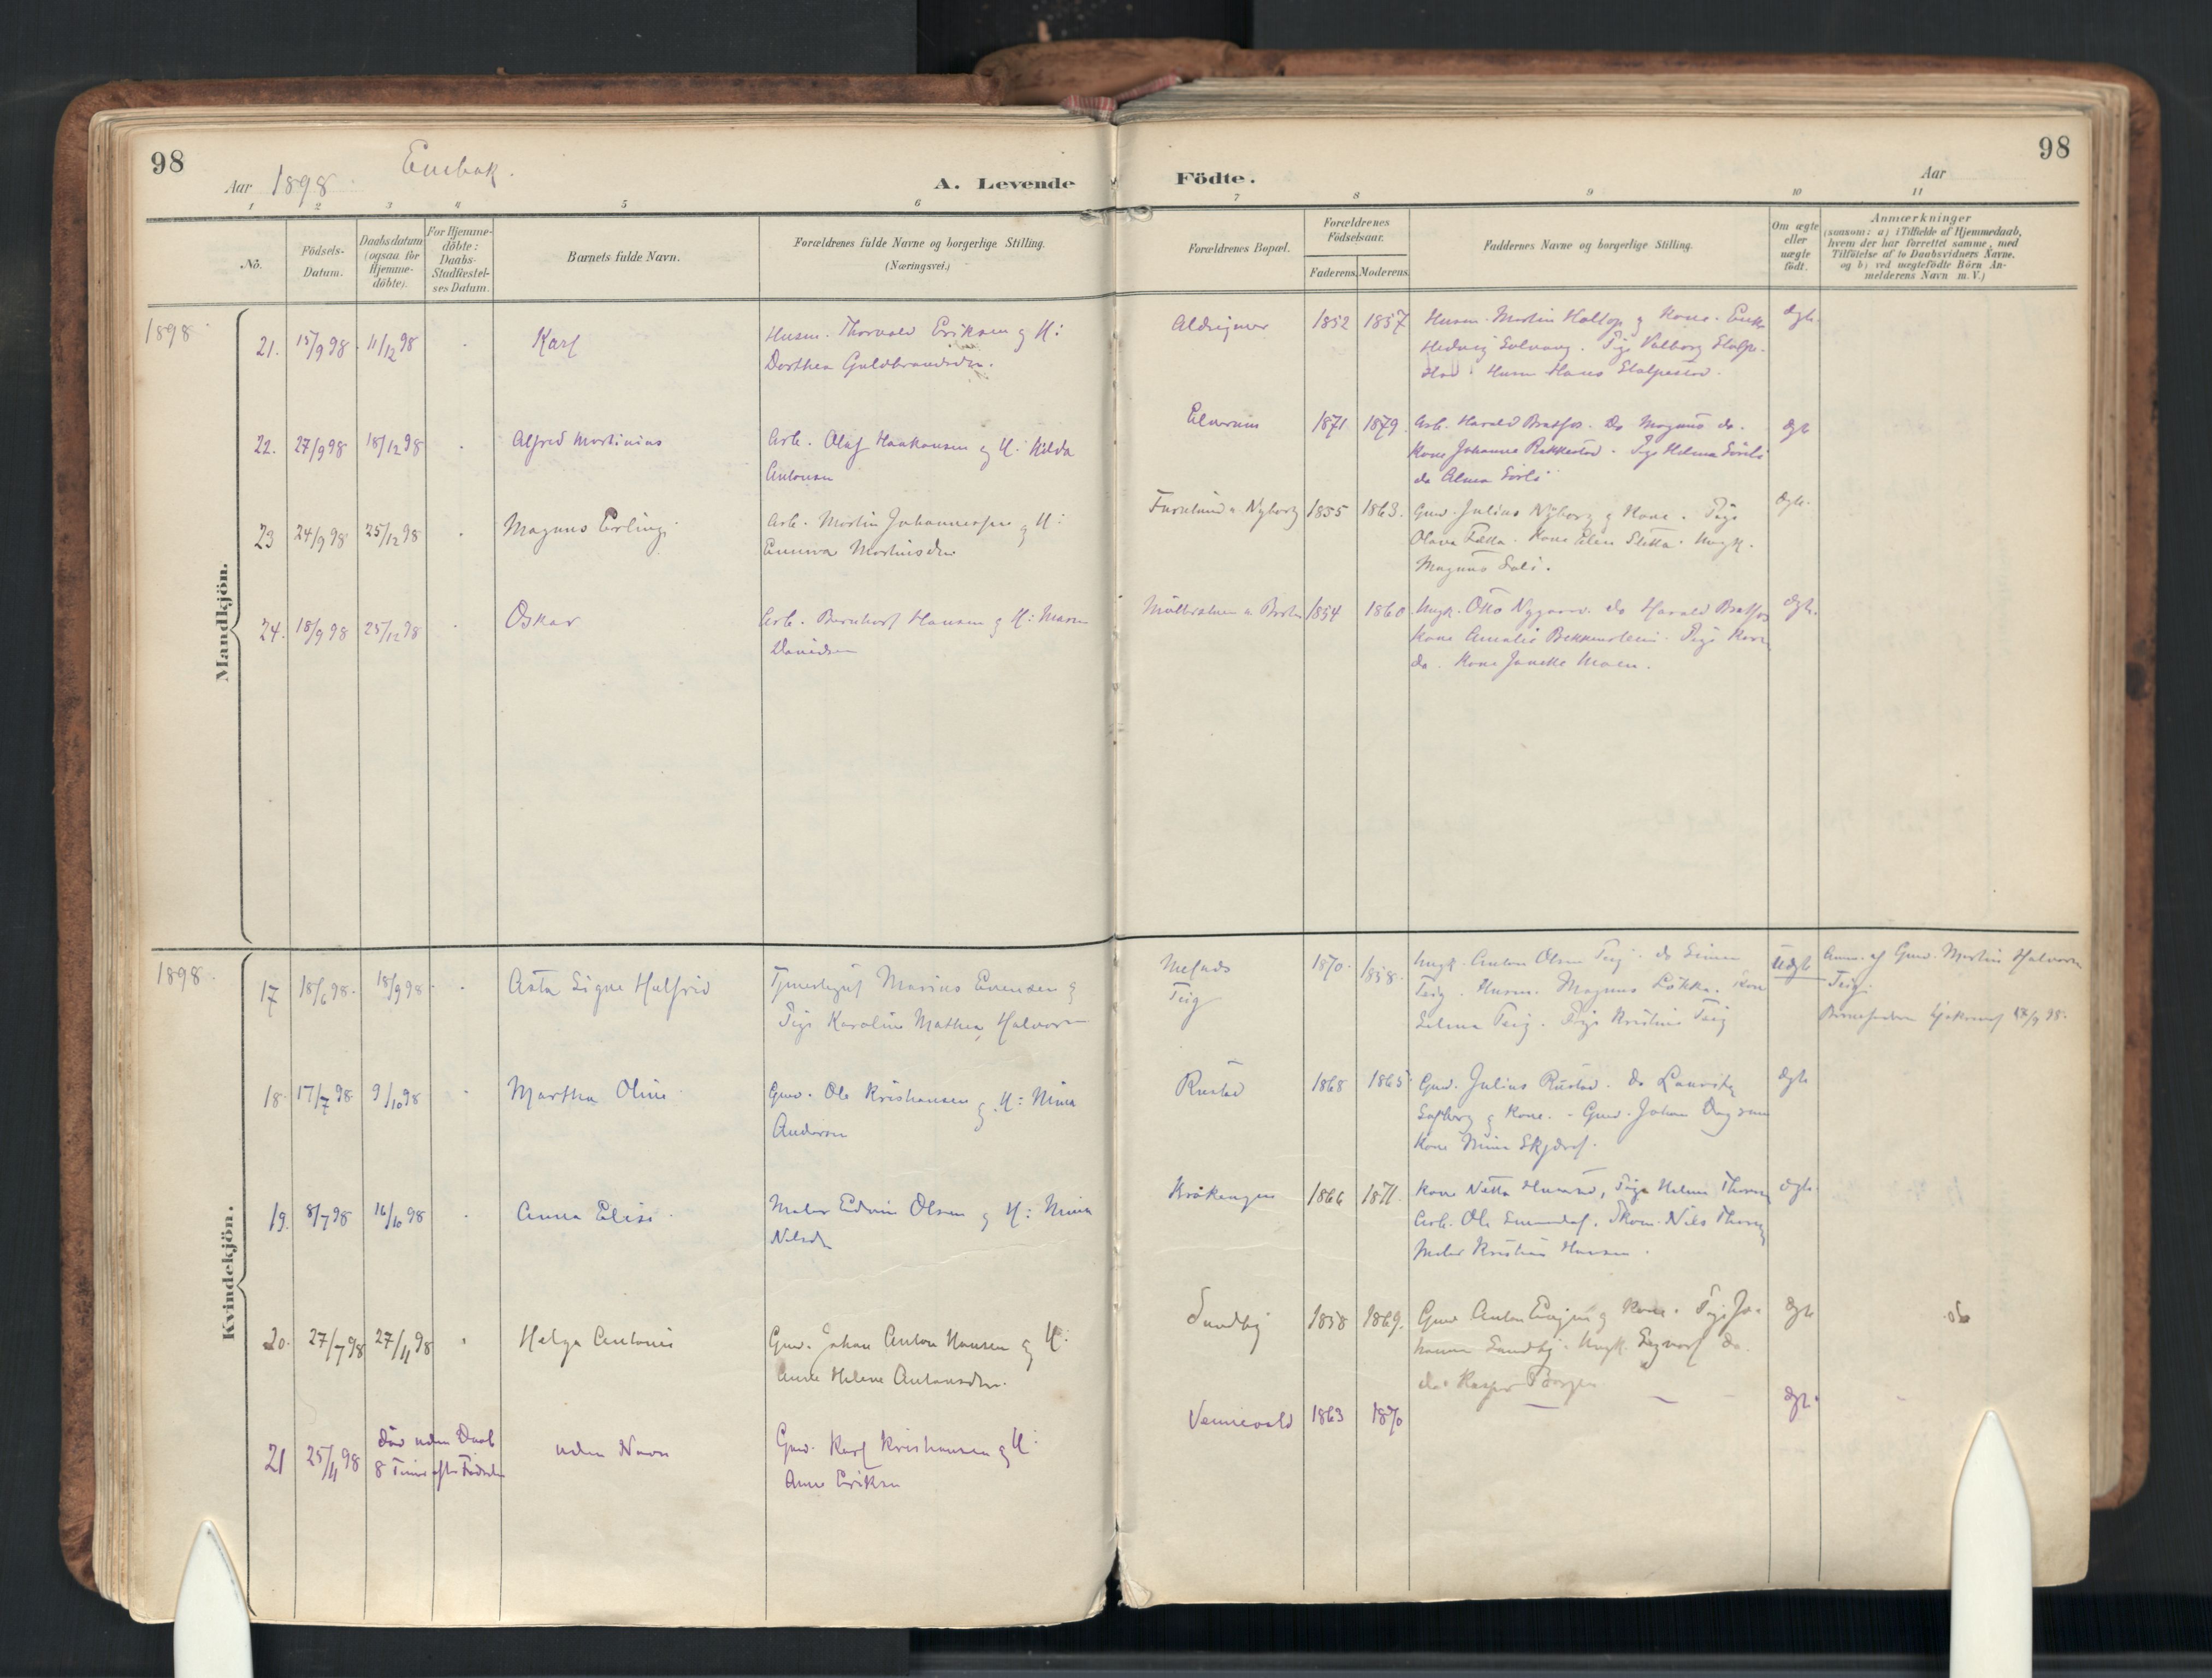 98
Aar 1898
Enebak.
A. Levende
Födte.
Aar
98
1 2 3 4 5 6 7 8 9 10 11
No.
Födsels-
Datum.
Daabsdatum
(ogsaa for
Hjemme-
döbte).
For Hjemme-
döbte:
Daabs-
Stadfæstel-
ses Datum.
Barnets fulde Navn.
Forældrenes fulde Navne og borgerlige Stilling.
(Næringsvei.)
Forældrenes Bopæl.
Forældrenes
Födselsaar.
Faderens. Moderens.
Faddernes Navne og borgerlige Stilling.
Om ægte
eller
uægte
födt.
Anmærkninger
(saasom: a) i Tilfælde af Hjemmedaab,
hvem der har forrettet samme, med
Tilföielse af to Daabsvidners Navne,
og b) ved uægtefödte Börn An-
melderens Navn m. V.)
Mandkjön.
1898
21. 15/9 98 11/12 98 Karl
Husm. Thorvald Eriksen og H:
Dorthea Guldbrandsdtr.
1852 1857
Husm. Martin Holtop og Kone. Enke
Hedvig Solvang. Pige Valborg Stolpe-
stad. Husm Hans Stolpestad.
ægte.
22. 27/9 98 18/12 98 Alfred Martinius
Arb. Olaf Haakonsen og H. Hilda
Antonsen
Elvarum 1871 1879
Arb. Harald Bratfos. Do Magnus do.
Kone Johanne Rakkestad. Pige Helma Sörli
do Alma Sörli
ægte
23 24/9 98 25/12 98 Magnus Erling.
Arb. Martin Johannessen og H:
Emma Martinsdtr
Furulund u. Nyborg 1855 1863.
Gmd. Julius Nyborg og Kone. Pige
Olava Kone Elen Sletta. Ungk.
Magnus Dali.
ægte.
24. 18/9 98 25/12 98 Oskar
Arb. Bernhart Hansen og H: Maren
Davidsen
1854 1860
Ungk. Otto Nygaard. do Harald Bratfos
Kone Amalie Pige Karen
do. Kone Janette Moen.
ægte.
Kvindekjön.
1898.
17 18/6 98. 18/9 98 Asta Signe Halfrid
Marius Evensen og
Pige Karoline Mathea Halvorsen
Mefads
Teig
1870. 1858.
Ungk. Anton Olsen Teig. do Simen
Teig. Husm. Magnus Lökka. Kone
Selma Teig. Pige Kristine Teig
Uægte
Anm. af Gmd. Martin Halvorsen
Teig.
Barnefaderen
18. 17/7 98 9/10 98 Martha Oline
Gmd. Ole Kristiansen og H: Mina
Andersen
Rustad 1868 1865
Gmd. Julius Rustad. do Lauritz
og Kone. Gmd. Johan
Kone Mina Skjærf.
ægte
19. 8/7 98 16/10 98 Anna Elise
Maler Edvin Olsen og H: Mina
Nilsdtr
Kråkengen 1866 1871
Kone Netta Pige Helma
Arb. Ole Nils
Maler Kristian Hansen.
ægte
20. 27/7 98 27/11 98 Helga Antonie
Gmd. Johan Anton Hansen og H:
Anne Helene Antonsdtr.
Sundby 1858 1869.
Gmd Anton og Kone. Pige Jo-
hanne Sundby. Ungk. Sigvart do.
do. Kasper Borgen
ægte
21 25/11 98 död uden Daab
8 Timer efter Födselen
uden Navn
Gmd. Karl Kristiansen og H:
Anne Eriksen
Vennevold 1863 1870
ægte.